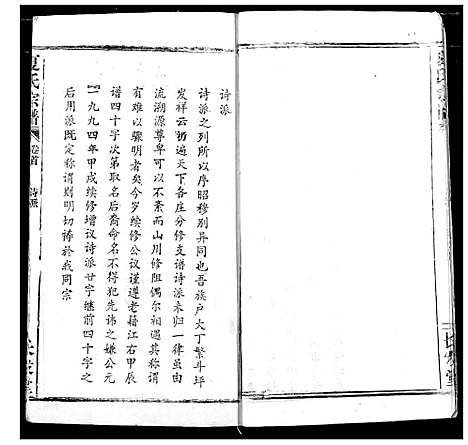 诗派
诗派之列所以序昭移别异同也吾族户大丁繁斗坪
发祥云礽遍天下各庄分修支谱诗派未归一律虽由
流溯源尊卑可以不紊而山川修阻偶尔相遇其称谓
有难以骤明者矣今岁续修公议谨遵老籍江右甲辰
谱四十字次第取名后裔命名不得犯先讳之嫌公元
一九九四年甲戌续修增议诗派廿字继前四十字之
后用派既定称谓则明切祷於我同宗
夏氏宗谱
卷首
诗派
长发堂